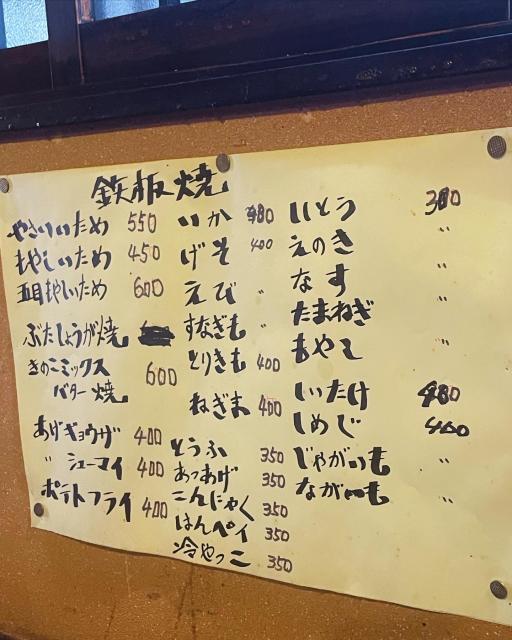 鉄板焼
やさいいため 550
もやしいため 450
五目もやしいため 600
ぶたしょうが焼
きのこミックス
バター焼 600
あげギョウザ 400
〃 シューマイ 400
ポテトフライ 400
いか 480
げそ 400
えび 〃
すなぎも 〃
とりきも 400
ねぎま 400
とうふ 350
あつあげ 350
こんにゃく 350
はんペイ 350
冷やっこ 350
しとう 380
えのき 〃
なす 〃
たまねぎ
もやし 〃
しいたけ 480
しめじ 400
じゃがいも 〃
ながいも 〃